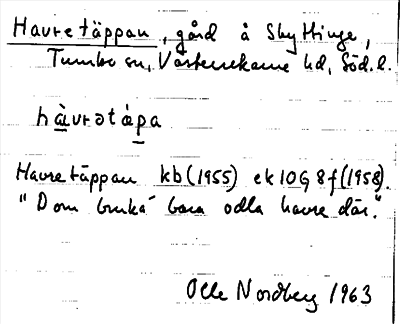 Havretäppan, gård å Skyttinge,
Tumbo sn, Västerrekarne hd, Söd. l.
hàvrətápa
Havretäppan kb (1955) ek 10G 8f (1958).
"Dom bruka bara odla havre där."
Olle Nordberg 1963